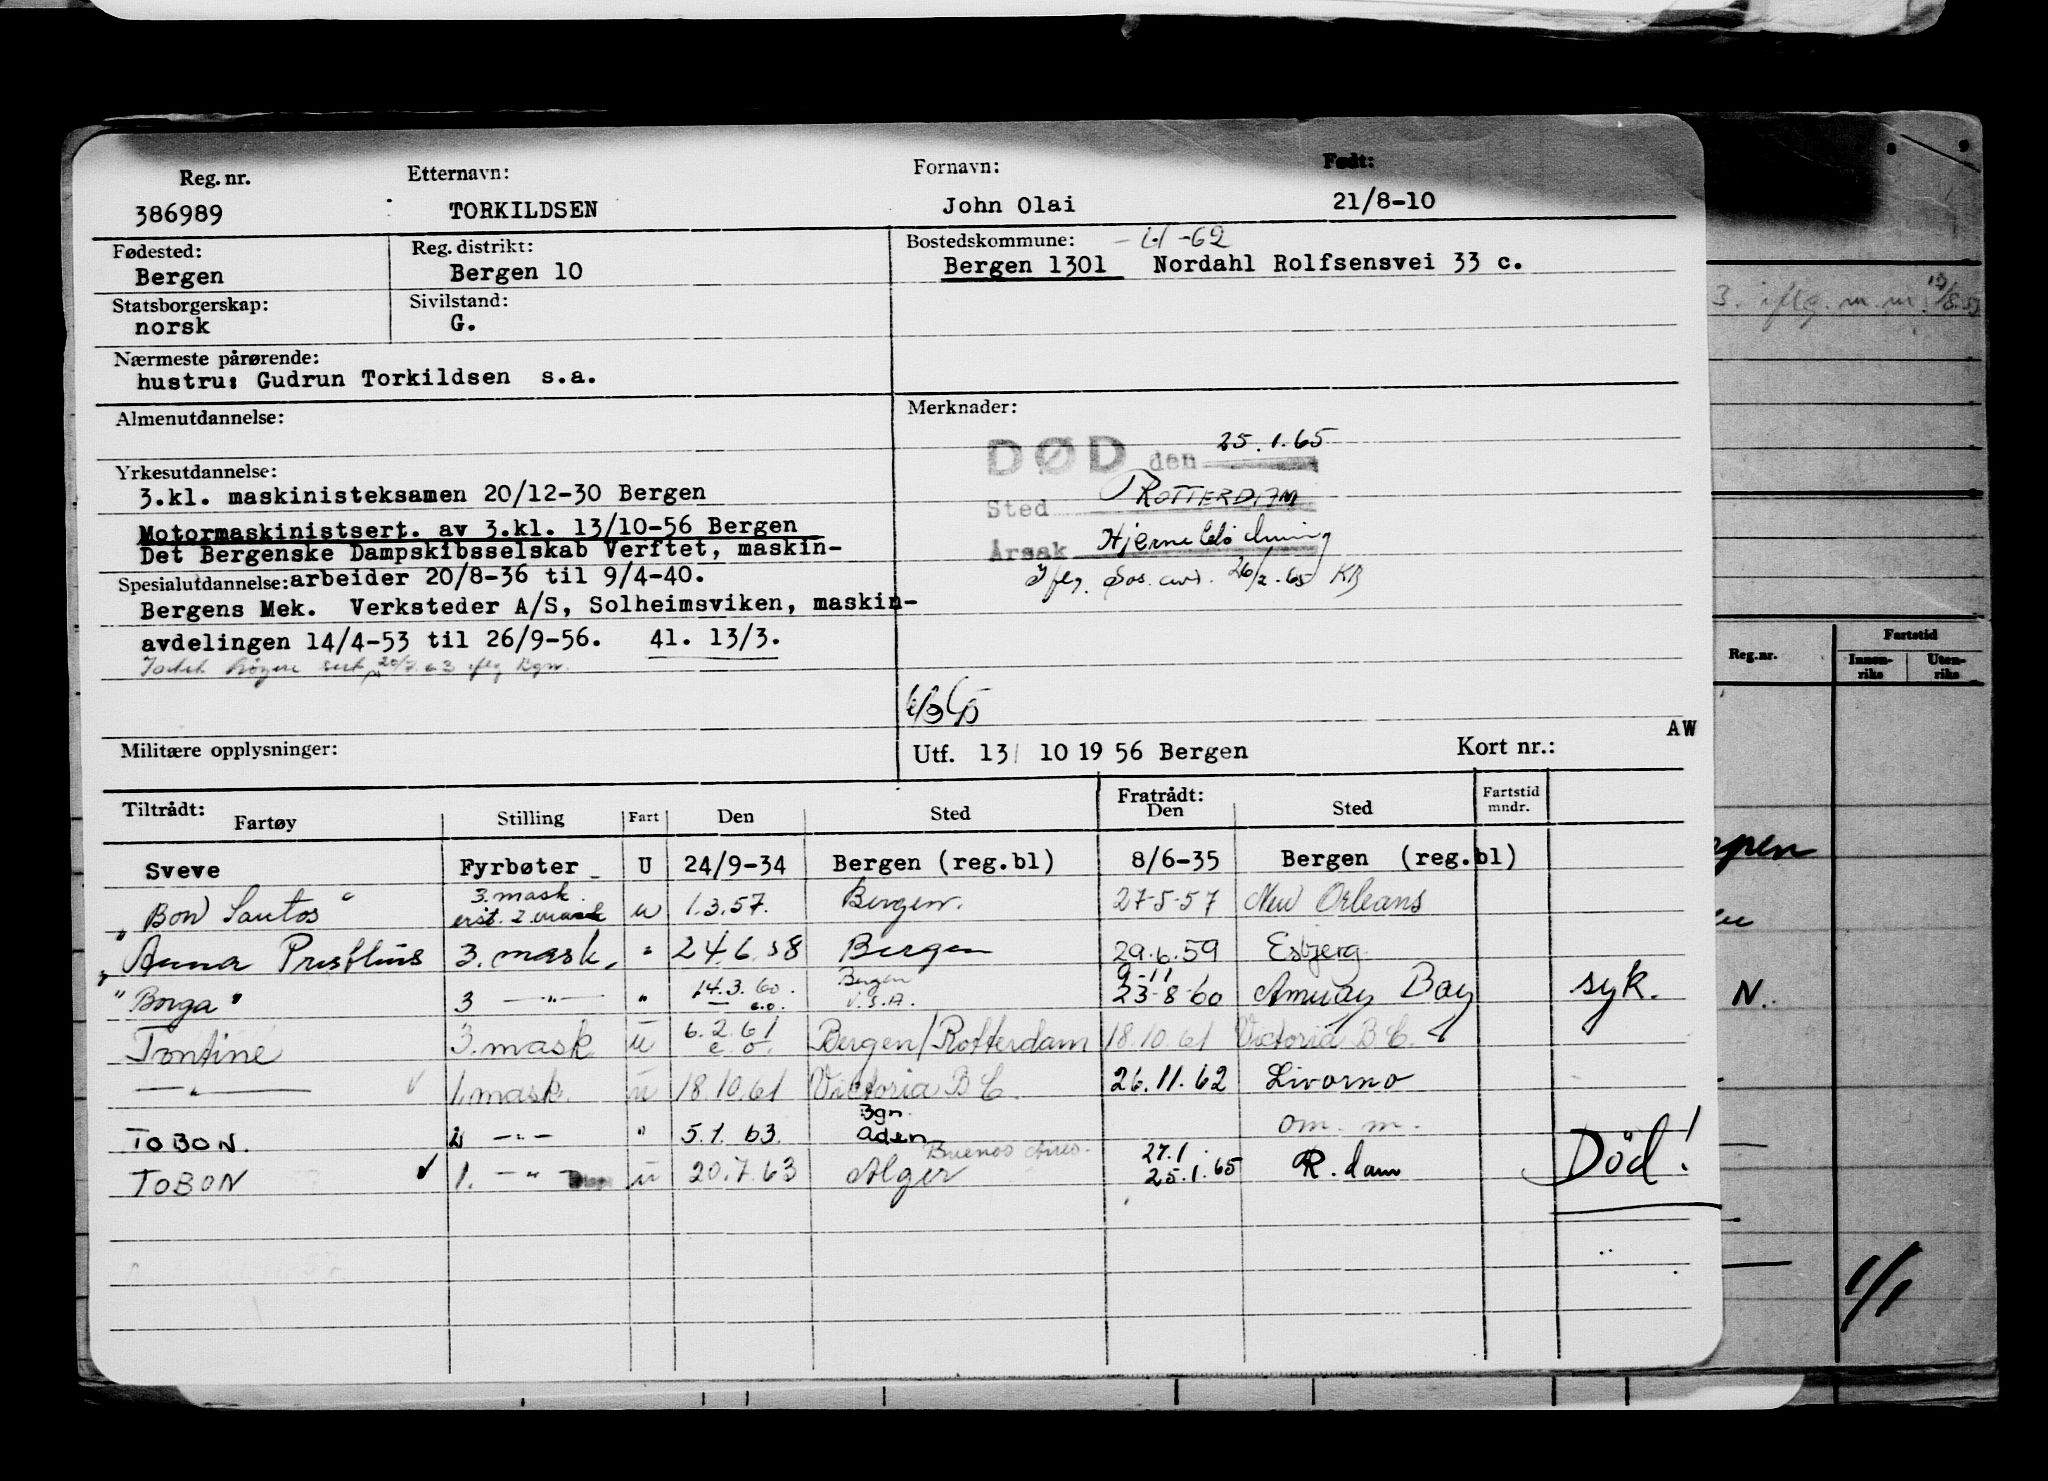 Reg. nr. Etternavn: Fornavn: Født:
386989 TORKILDSEN John Olai 21/8-10
Fødested: Reg. distrikt: Bostedskommune: -62
Bergen Bergen 10 Bergen 1301 Nordahl Rolfsensvei 33 c.
Statsborgerskap: Sivilstand:
norsk G.
Nærmeste pårørende:
hustru: Gudrun Torkildsen s.a.
Almenutdannelse: Merknader:
DØD den 25.1.65
Sted ROTTERDAM
Årsak Hjerneblødning
Iflg. 26/2-65 KB
Yrkesutdannelse:
3.kl. maskinisteksamen 20/12-30 Bergen
Motormaskinistsert. av 3.kl. 13/10-56 Bergen
Det Bergenske Dampskibsselskab Verftet, maskin-
Spesialutdannelse: arbeider 20/8-36 til 9/4-40.
Bergens Mek. Verksteder A/S, Solheimsviken, maskin-
avdelingen 14/4-53 til 26/9-56. 41. 13/3.
høyere sert 20/7.63 iflg Bgn.
AW
Militære opplysninger: Utf. 13/ 10 19 56 Bergen Kort nr.:
Tiltrådt: Fratrådt: Fartstid
Fartøy Stilling Fart Den Sted Den Sted mndr.
Sveve Fyrbøter U 24/9-34 Bergen (reg.bl) 8/6-35 Bergen (reg.bl)
3. mask.
"Bow Santos" erst. 2 mask u 1.3.57. Bergen. 27-5-57 New Orleans
" Anna Presthus 3. mask. " 24.6.58 Bergen 29.6.59 Esbjerg
14.3.60. Bergen 9-11
"Borga" 3 —"— " e.o. U.S.A. 23-8-60 Amuay Bay syk.
Tontine 3. mask u 6.2.61 e.o. Bergen/Rotterdam 18.10.61 Victoria B.C.
—"— 1. mask. u 18.10.61 Victoria B.C. 26.11.62 Livorno
Bgn.
TOBON. —"— " 5.1.63. Aden om. m.
Buenos Aires. 27.1
TOBON 1. —"— u 20.7.63 Alger 25.1.65 R.dam Död!
3. iflg. m.m.
Fartstid
Reg.nr. Innen-riks Uten-riks
N.
1/1